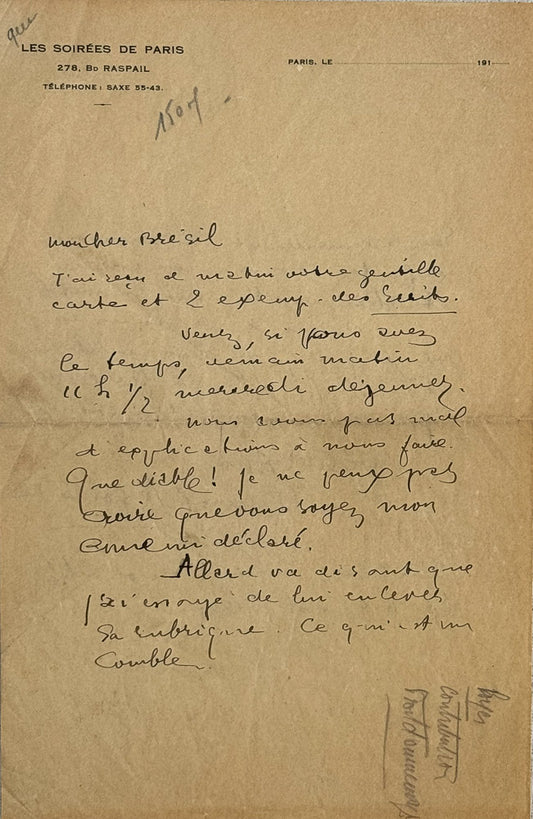 LES SOIRÉES DE PARIS
278, BD RASPAIL
TÉLÉPHONE : SAXE 55-43.
PARIS, LE 191
150 f
mon cher Brésil
J'ai reçu ce matin votre gentille
carte et 2 exemp. des Ecrits.
Venez, si vous avez
le temps, demain matin
11 h 1/2 mercredi déjeuner.
nous avons pas mal
d'explications à nous faire.
Que diable ! je ne peux pas
croire que vous soyez mon
ennemi déclaré.
Allard va disant que
j'ai essayé de lui enlever
sa rubrique. Ce qui est un
comble.
Payer
contribution